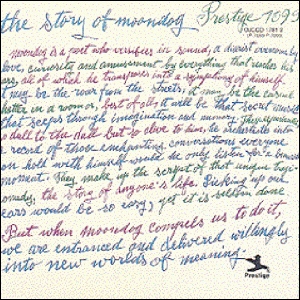 the story of moondog Prestige 7099
OJCCD 1741 2
(P-7099)
moondog is a poet who versifies in sound, a diarist overcome by
love, curiosity and amusement by everything that reaches his
ears, all of which he transposes into a symphony of himself.
it may be the roar from the streets, it may be the casual
chatter in a room, best of all, it will be that secret music
that seeps through imagination and memory. The inanimate
is dull to the dull but so alive to him, he orchestrates into
a record of those enchanting conversations everyone
can hold with himself would he only listen for a brimming
moment. They make up the script of that unique tragi-
comedy, the story of anyone's life. Picking up one's
ears would be so easy, yet it is seldom done.
But when moondog compels us to do it,
we are entranced and delivered willingly
into new worlds of meaning.
Prestige